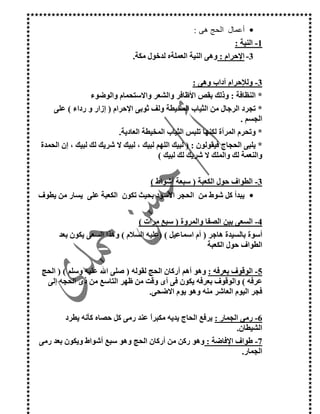 • أعمال الحج هى :
1- النية :
3- الإحرام : وهى النية العملةء لدخول مكة.
3- وللإحرام أداب وهى :
* النظافة : وذلك بقص الأظافر والشعر والاستحمام والوضوء
* تجرد الرجال من الثياب المخيطة ولف ثوبى الإحرام ( إزار و رداء ) على
الجسم .
* وتحرم المرأة لكنها تلبس الثياب المخيطة العادية.
* يلبى الحجاج فيقولون : ( لبيك اللهم لبيك ، لبيك لا شريك لك لبيك ، إن الحمدة
والنعمة لك والملك لا شريك لك لبيك )
3- الطواف حول الكعبة ( سبعة أشواط )
• يبدأ كل شوط من الحجر الأسود بحيث تكون الكعبة على يسار من يطوف
4- السعى بين الصفا والمروة ( سبع مرات )
أسوة بالسيدة هاجر ( أم اسماعيل ) ( عليه السلام ) وهذا السعى يكون بعد
الطواف حول الكعبة
5- الوقوف بعرفه : وهو أهم أركان الحج لقوله ( صلى الله عليه وسلم ) ( الحج
عرفه ) والوقوف بعرفه يكون فى أى وقت من ظهر التاسع من ذى الحجه إلى
فجر اليوم العاشر منه وهو يوم الاضحى.
6- رمى الجمار : يرفع الحاج يديه مكبرأ عند رمى كل حصاه كأنه يطرد
الشيطان.
7- طواف الإفاضة : وهو ركن من أركان الحج وهو سبع أشواط ويكون بعد رمى
الجمار.